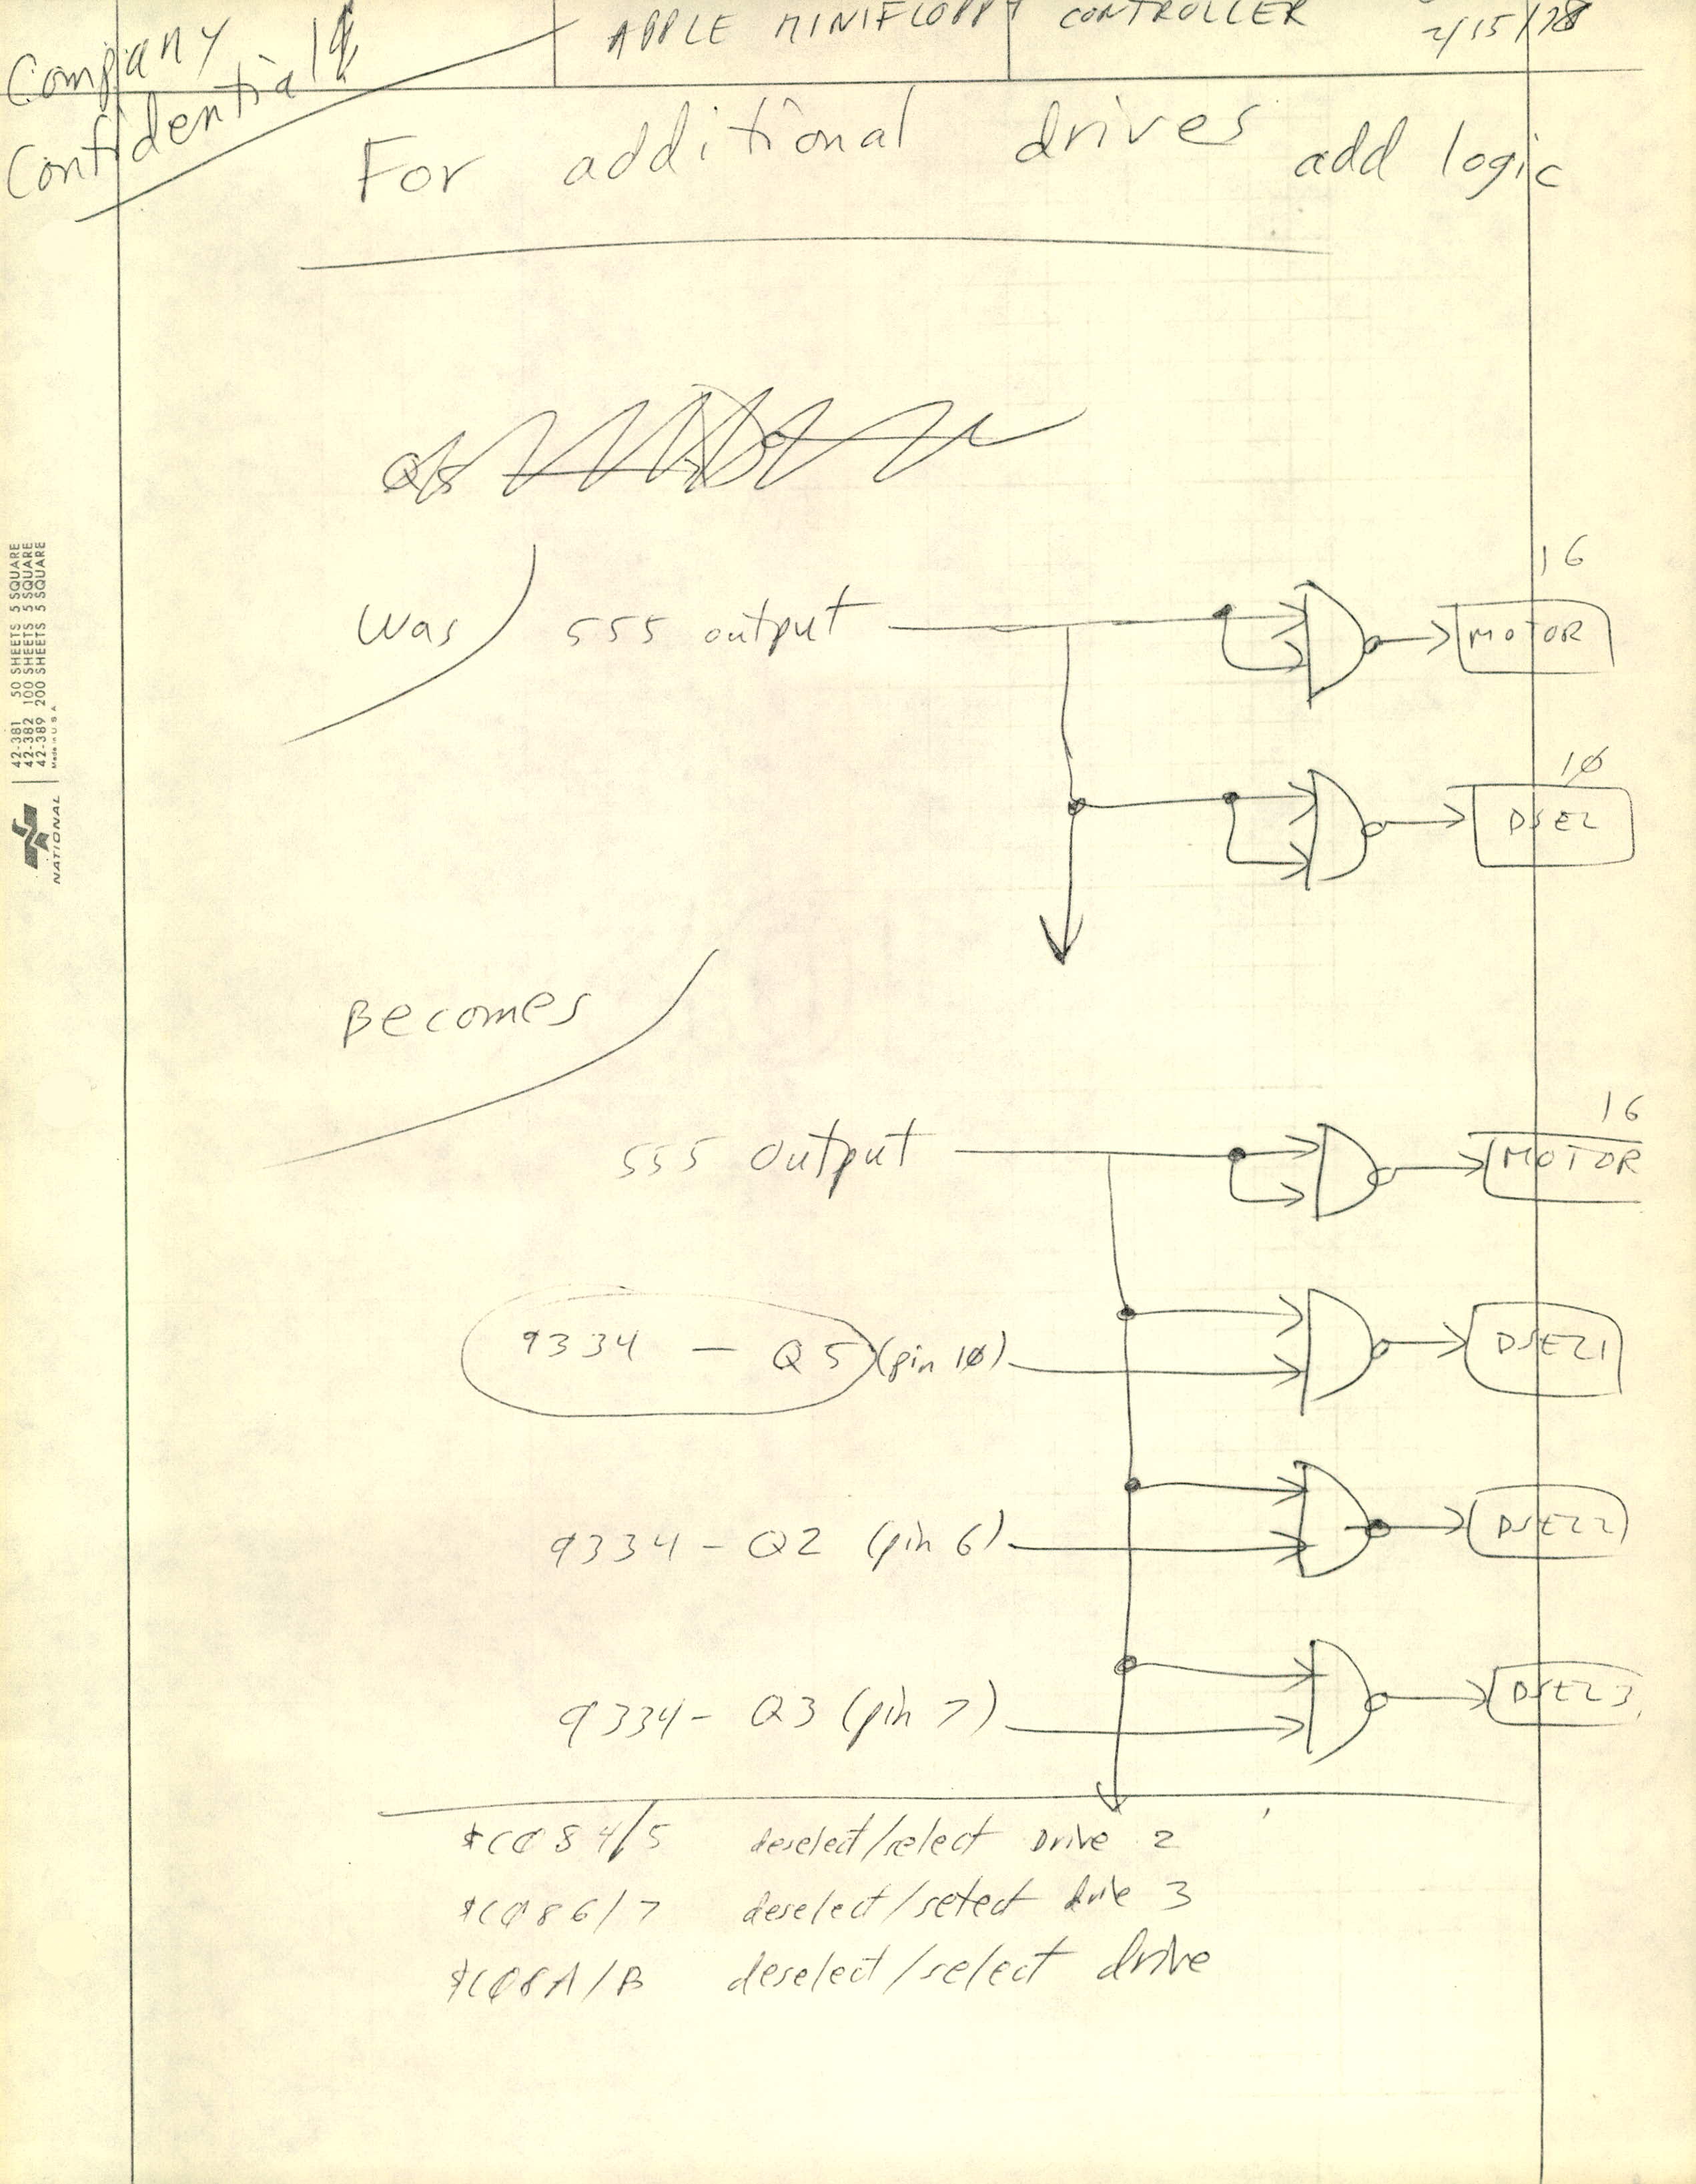 Company
Confidential
APPLE MINIFLOPPY CONTROLLER
2/15/78
For additional drives add logic
Q5
42-381 50 SHEETS 5 SQUARE
42-382 100 SHEETS 5 SQUARE
42-389 200 SHEETS 5 SQUARE
Made in U.S.A.
NATIONAL
Was 555 output
16
MOTOR
1Ø
DSEL
Becomes
555 Output
16
MOTOR
9334 - Q5 (pin 1Ø)
DSEL1
9334 - Q2 (pin 6)
DSEL2
9334 - Q3 (pin 7)
DSEL3
$CØ84/5 deselect/select Drive 2
$CØ86/7 deselect/select drive 3
$CØ8A/B deselect/select drive